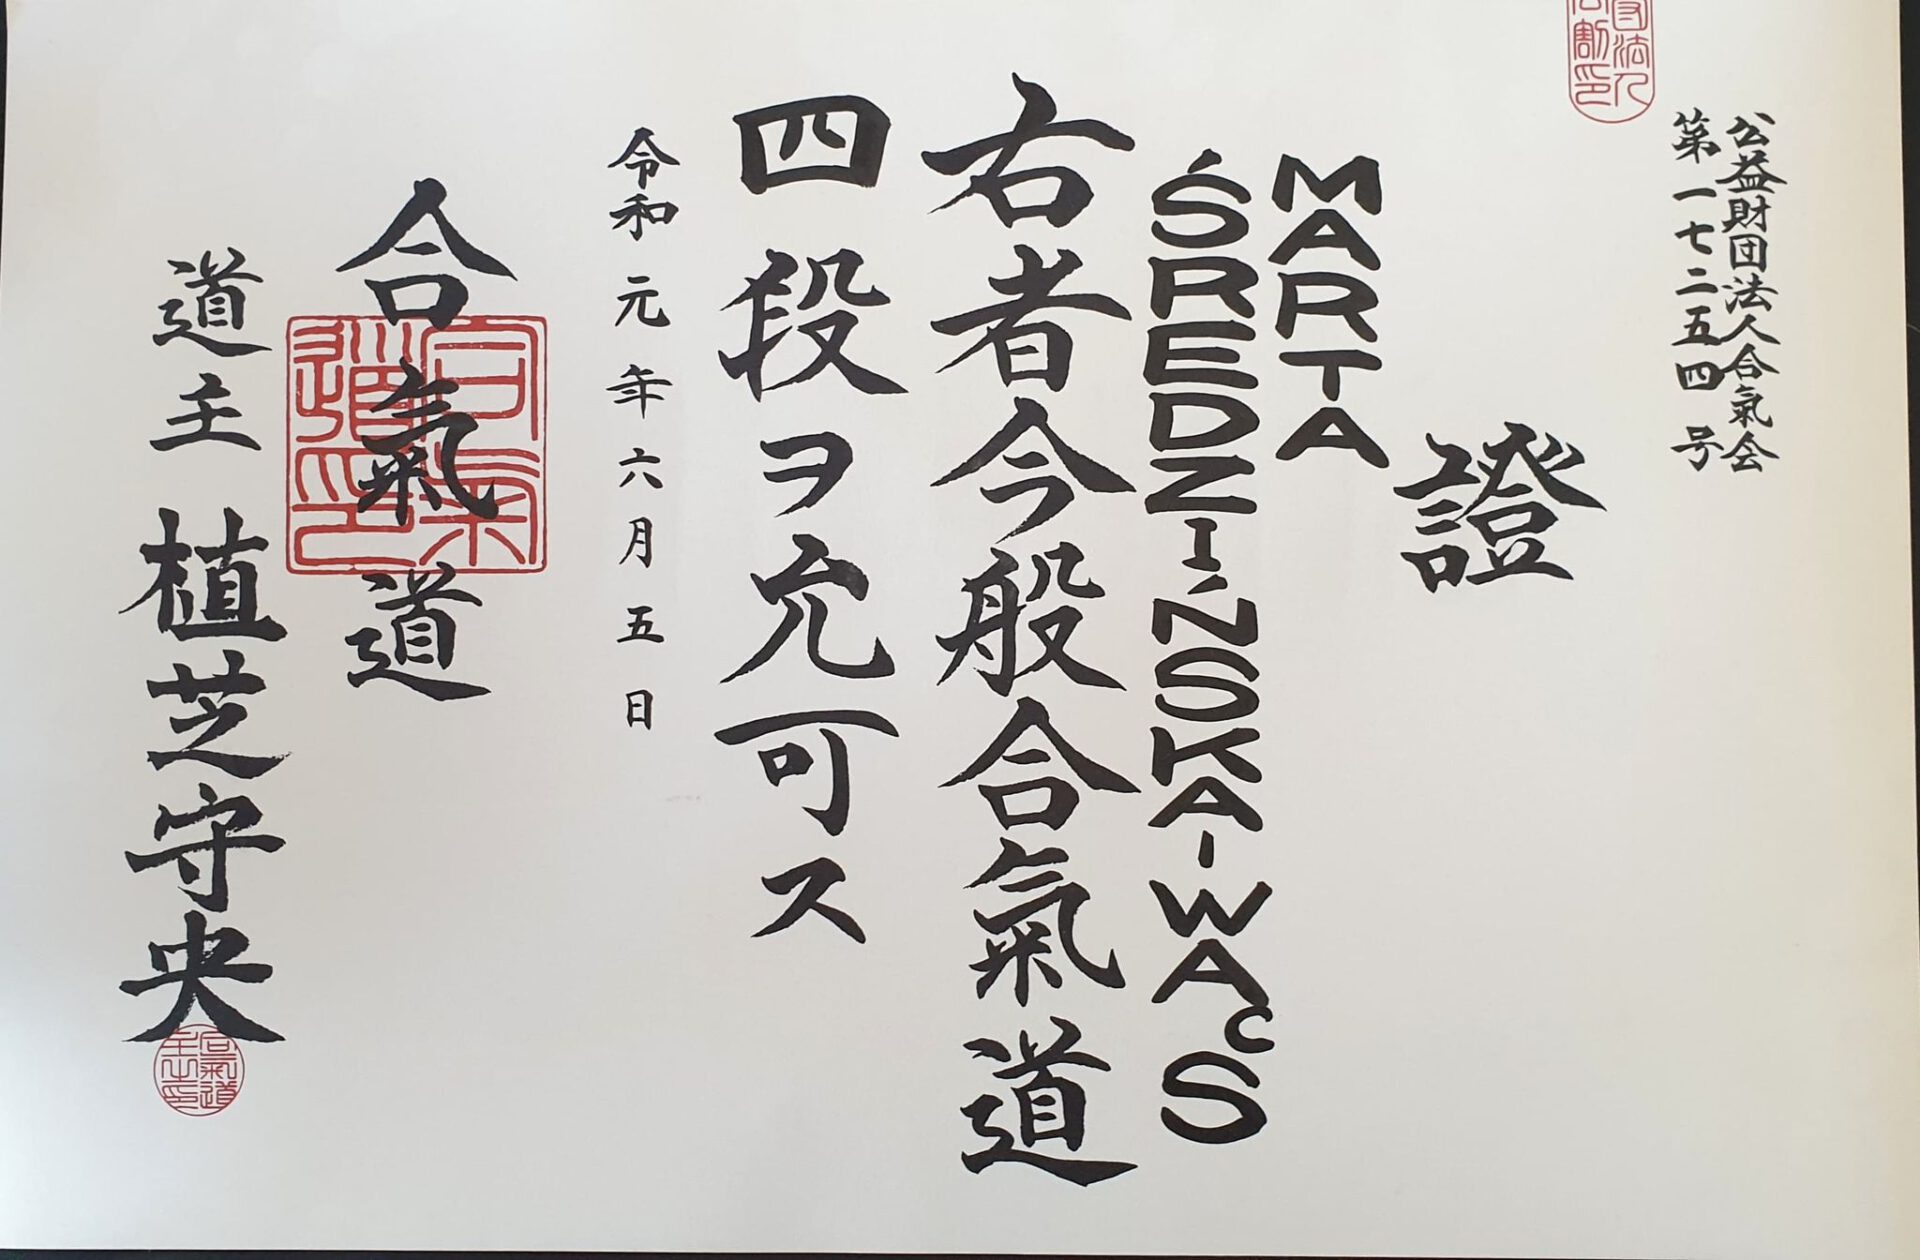 公益財団法人合氣会
第一七二五四号
證
MARTA
ŚREDZIŃSKA-WĄCS
右者今般合氣道
四段ヲ允可ス
令和元年六月五日
合氣道
道主 植芝守央
合氣道印
合氣道主之印